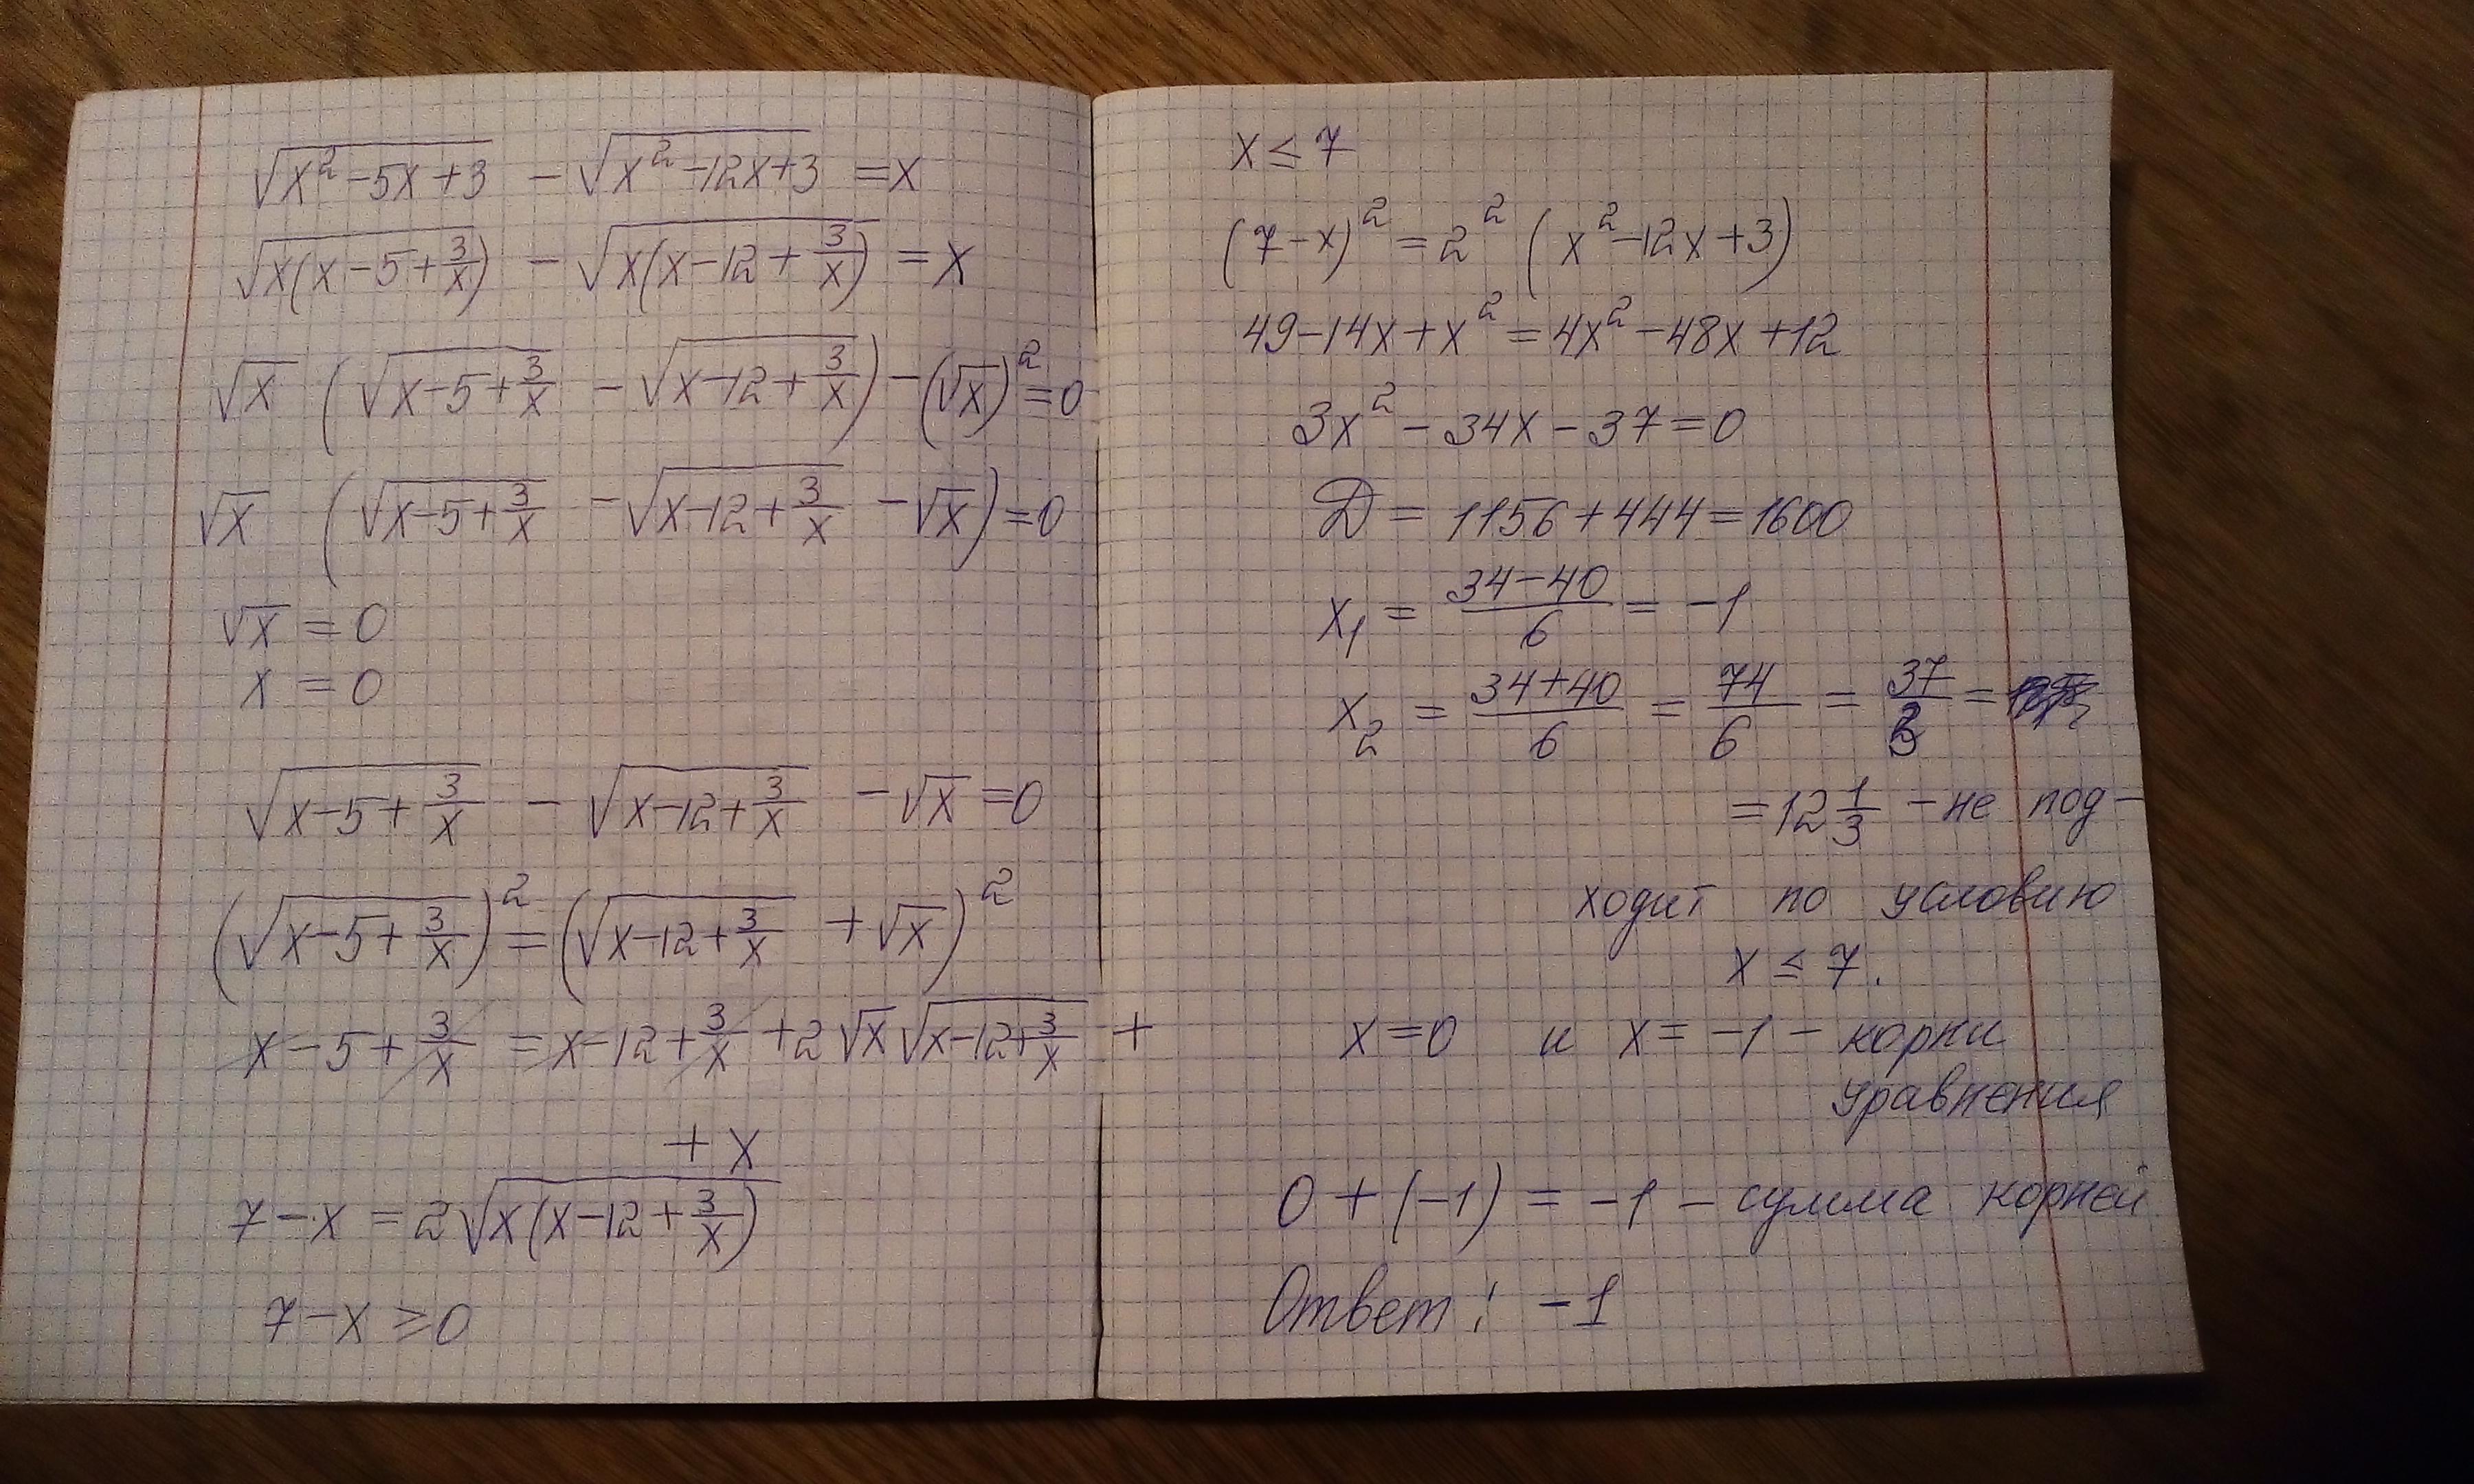 √(x²-5x+3) - √(x²-12x+3) = x
√(x(x-5+3/x)) - √(x(x-12+3/x)) = x
√x (√(x-5+3/x) - √(x-12+3/x)) - (√x)² = 0
√x (√(x-5+3/x) - √(x-12+3/x) - √x) = 0
√x = 0
x = 0
√(x-5+3/x) - √(x-12+3/x) - √x = 0
(√(x-5+3/x))² = (√(x-12+3/x) + √x)²
x-5+3/x = x-12+3/x + 2√x√(x-12+3/x) +
+ x
7-x = 2√(x(x-12+3/x))
7-x ≥ 0
x ≤ 7
(7-x)² = 2² (x²-12x+3)
49-14x+x² = 4x²-48x+12
3x²-34x-37=0
D = 1156+444=1600
x₁ = (34-40)/6 = -1
x₂ = (34+40)/6 = 74/6 = 37/3 =
= 12 1/3 - не под-
ходит по условию
x ≤ 7.
x=0 и x=-1 - корни
уравнения
0+(-1) = -1 - сумма корней
Ответ: -1